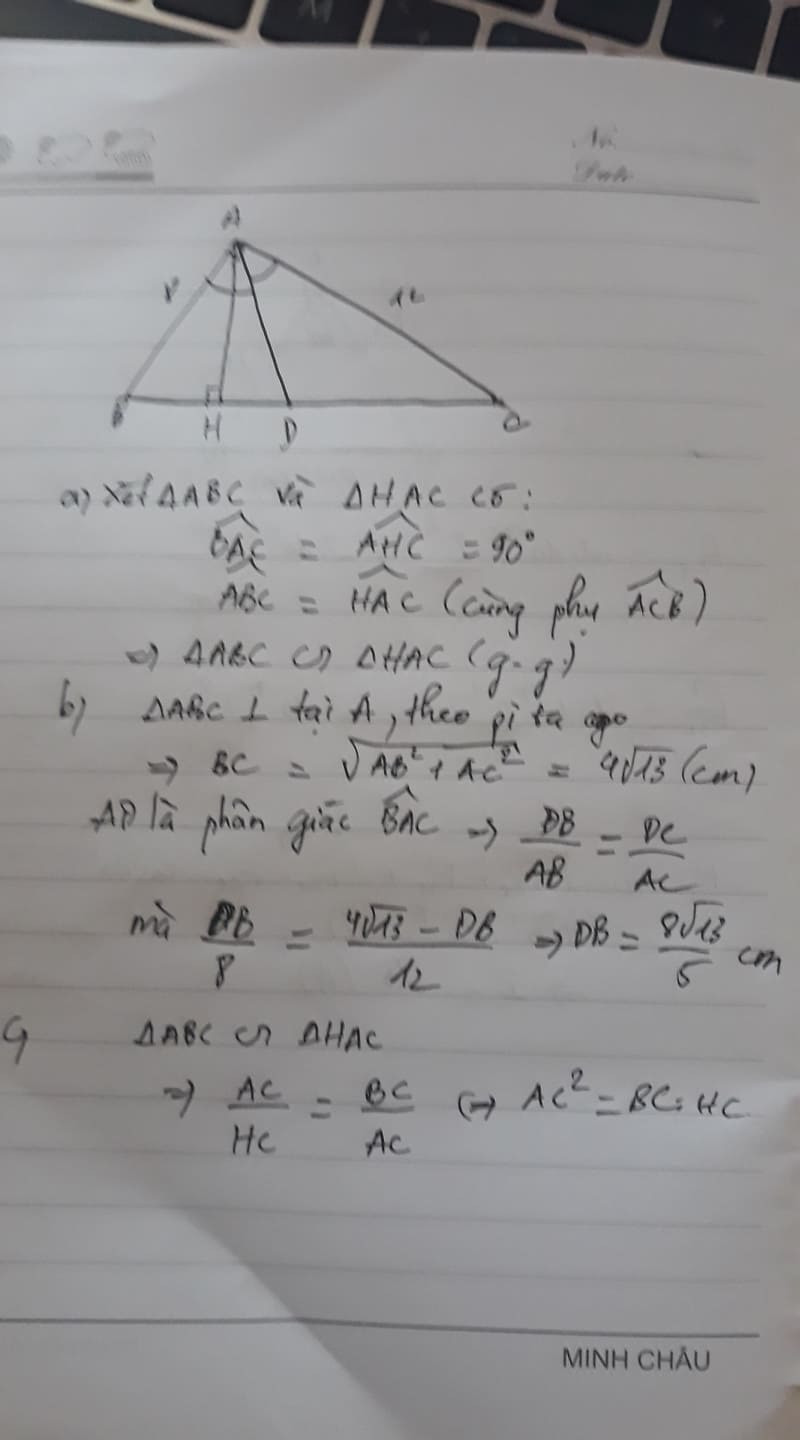 A
8
12
B
H
D
C
a) Xét ΔABC và ΔHAC có:
\widehat{BAC} = \widehat{AHC} = 90°
\widehat{ABC} = \widehat{HAC} (cùng phụ \widehat{ACB})
=> ΔABC ∽ ΔHAC (g.g)
b) ΔABC ⊥ tại A, theo pi ta go
=> BC = √(AB² + AC²) = 4√13 (cm)
AD là phân giác \widehat{BAC} => DB/AB = DC/AC
mà DB/8 = (4√13 - DB)/12 => DB = 8√13/5 cm
c) ΔABC ∽ ΔHAC
=> AC/HC = BC/AC <=> AC² = BC.HC
MINH CHÂU